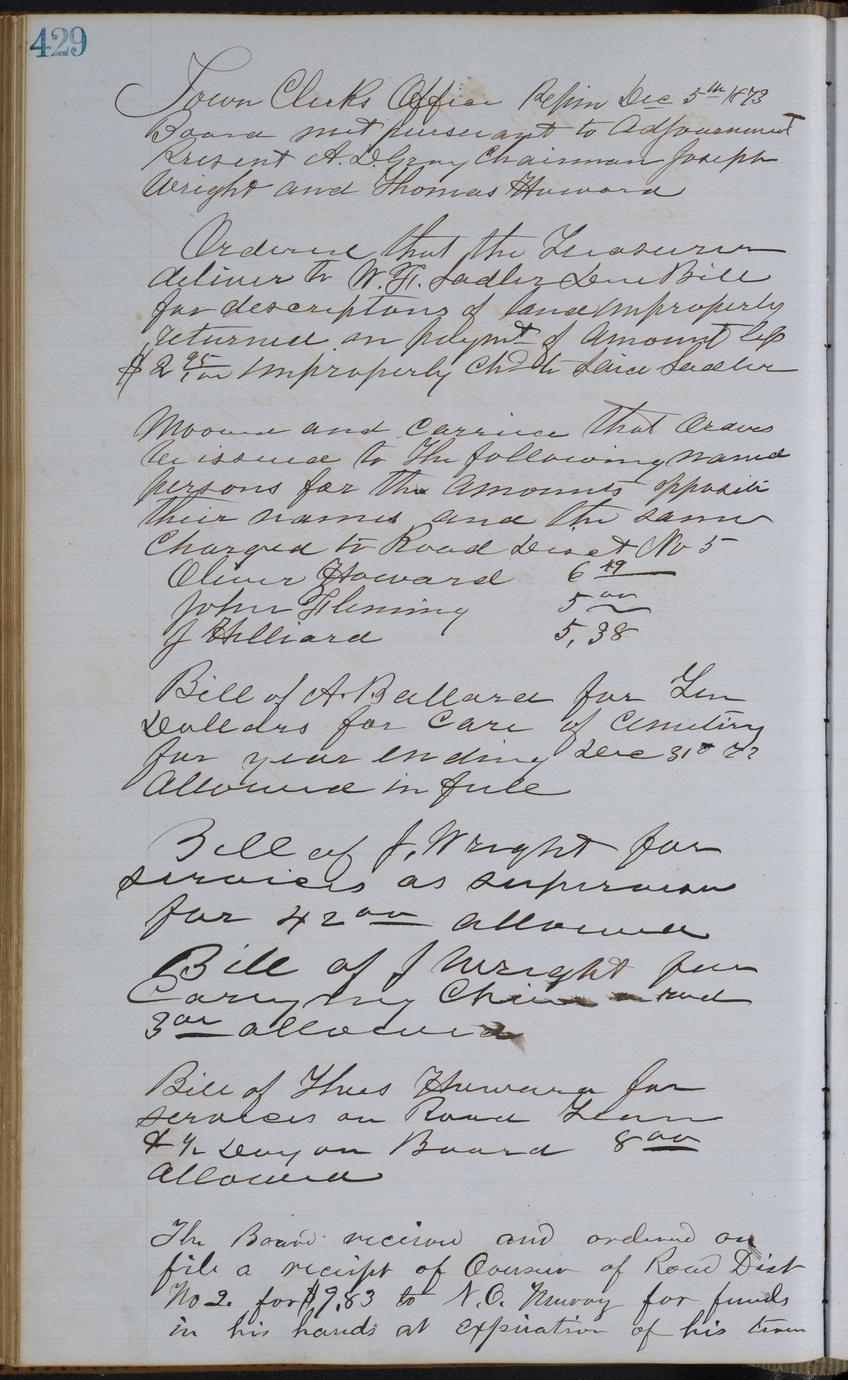 429
Town Clerks Office Pepin Dec 5th 1873
Board met pursuant to Adjournment
Present A. D. Gray Chairman Joseph
Wright and Thomas Howard
Ordered that the Treasurer
deliver to W. H. Sadler Due Bill
for descriptons of land improperly
returned on paymt of amount less
$2 95/100 improperly chd to said Sadler
Mooved and Carried that Orders
be issued to the following named
persons for the amounts opposite
their names and the same
Charged to Road No 5
Oliver Howard 6 49
John Fleming 5 00
J Hilliard 5,38
Bill of A. Ballard for Ten
Dollars for Care of Cemetery
for year Ending Dec 31st
Allowed in full
Bill of J. Wright for
services as supervisor
for 42 00 allowed
Bill of J Wright for
Carrying
3 00 allowed
Bill of Thos Howard for
services on Road
& 1/2 Day on Board 8 00
Allowed
The Board recieved and ordered on
file a reciept of Overseer of Road Dist
No 2. for $9,83 to N. O. Murray for funds
in his hands at expiration of his term